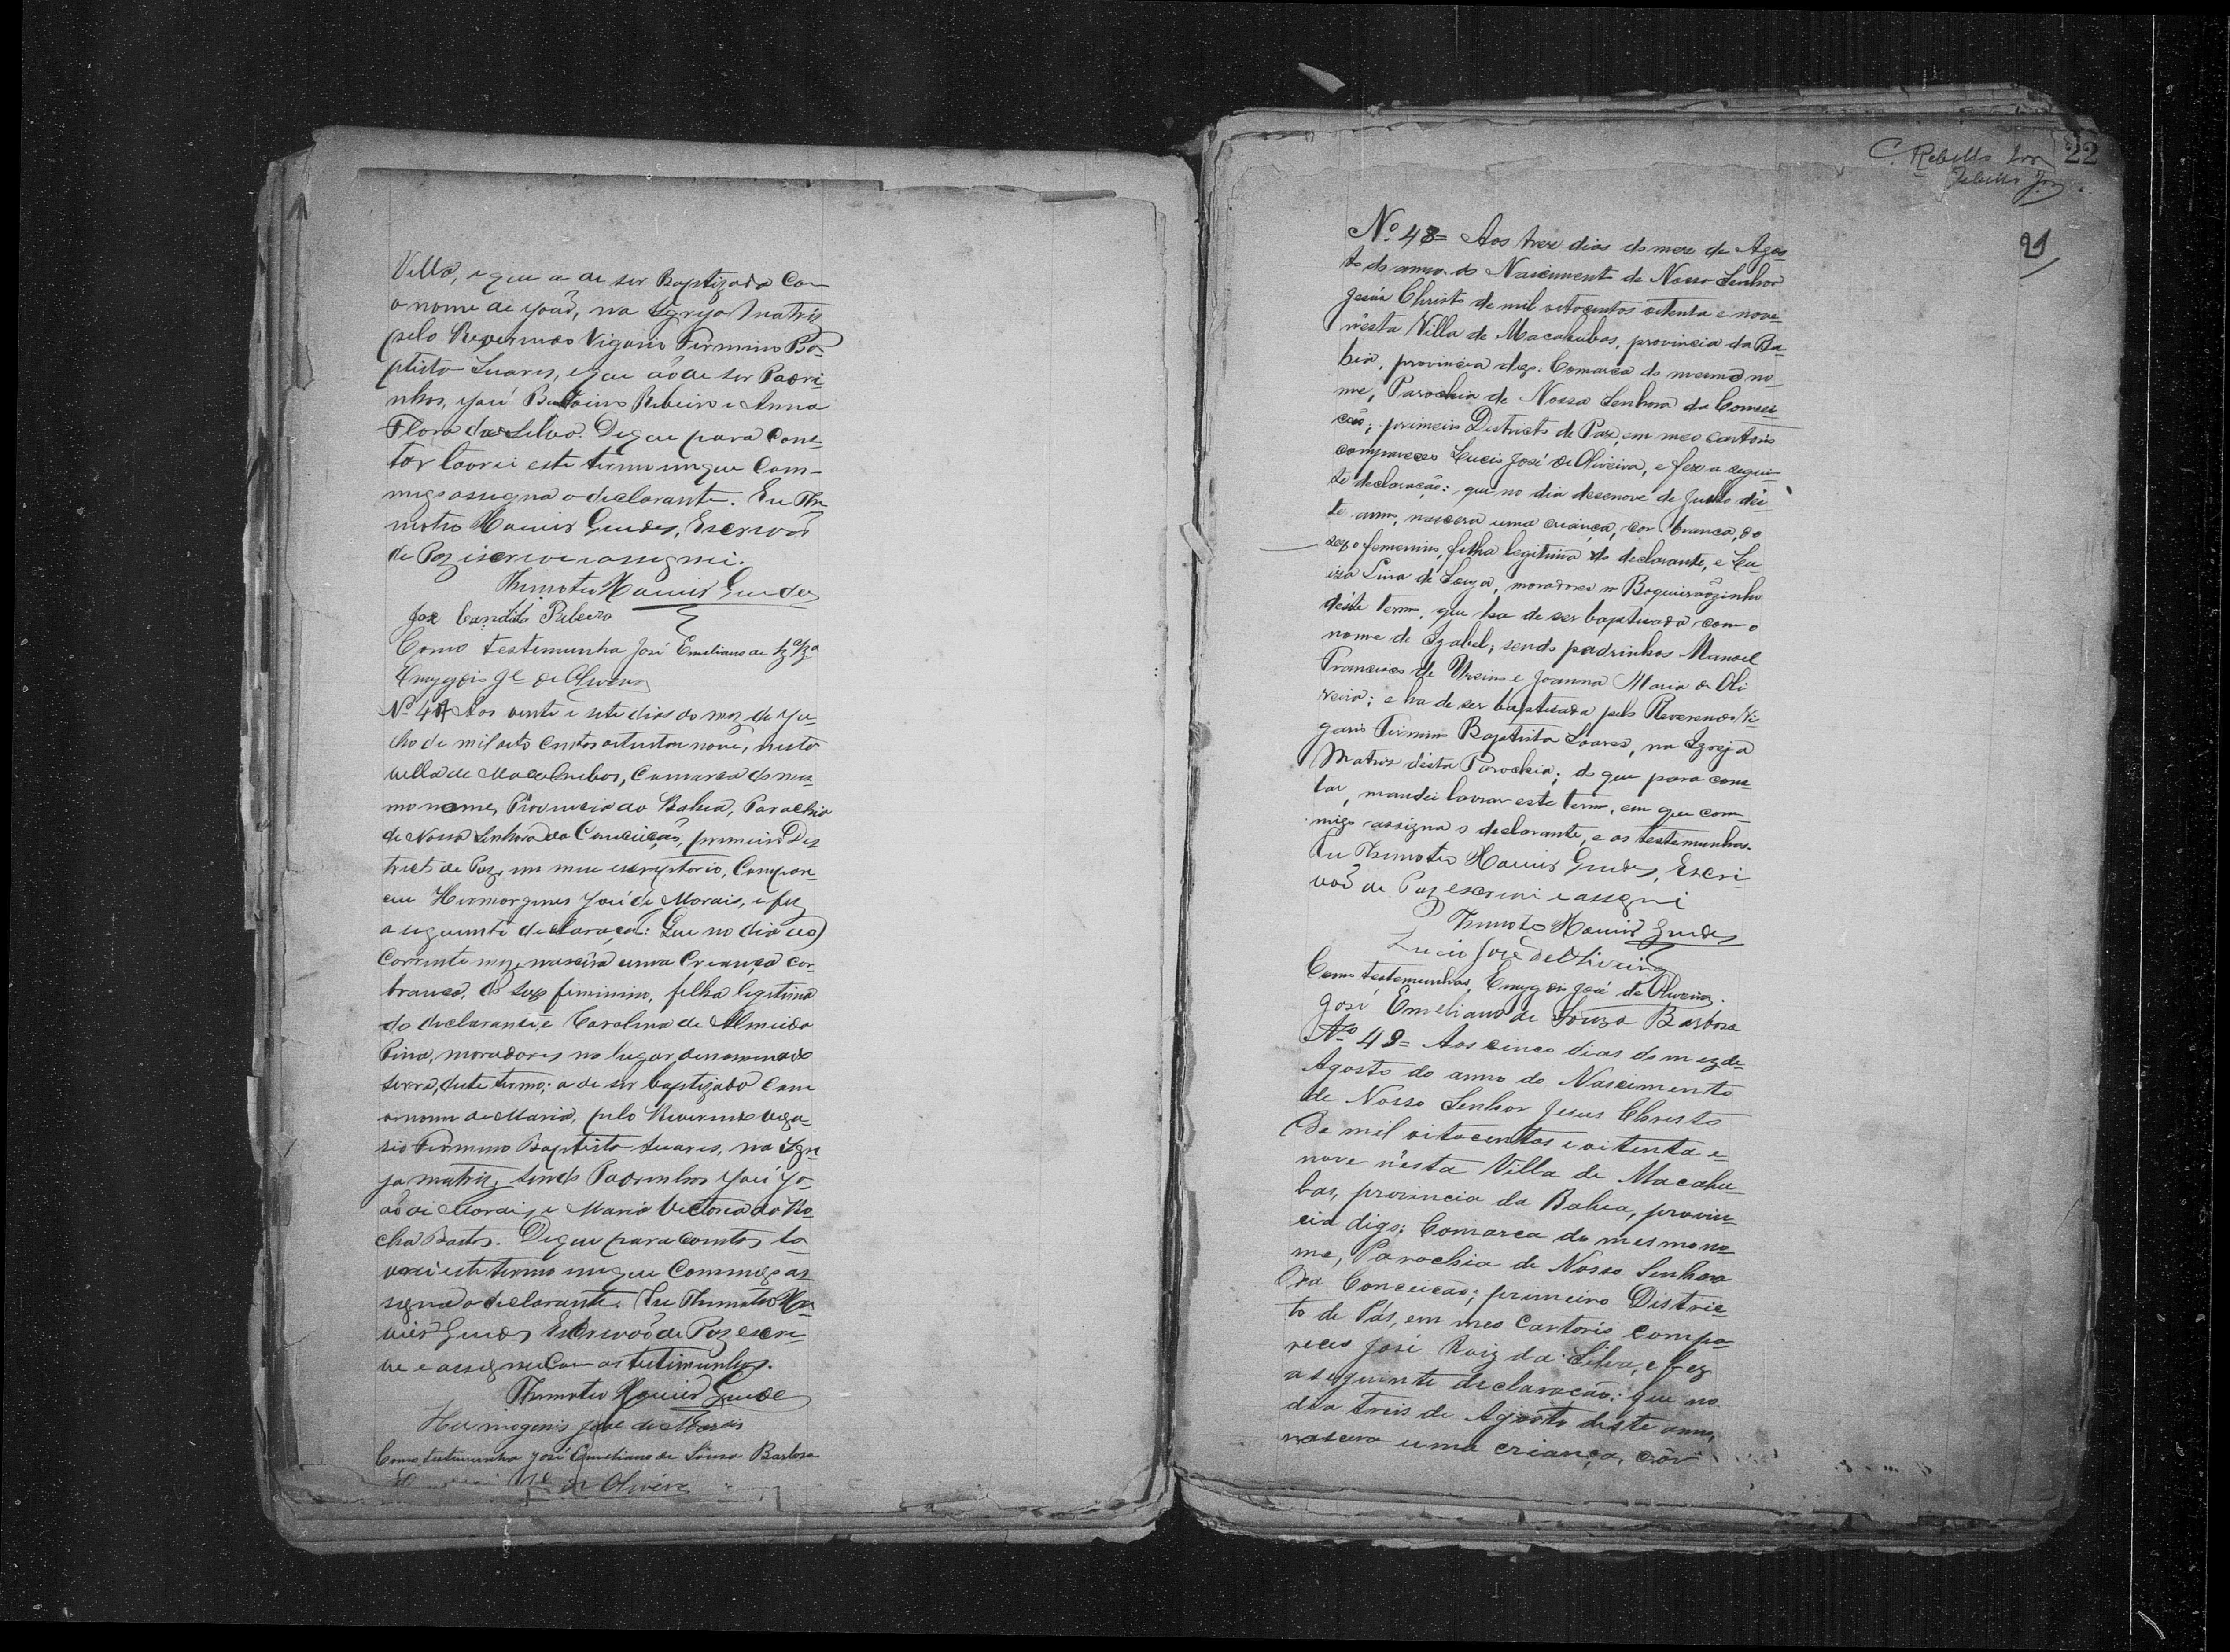 Villa, e que a de ser Baptizada Com
o nome de João, na Igreja Matris
pelo Reverendo Vigario Firmino Ba-
ptista Suares, e que ão de ser Padri-
nhos, José Ribeiro e Anna
Flora da Silva. De que para cons-
tar lavrei este termo em que Com-
migo assigna o declarante. Eu Thi-
motio Xavier Guedes, Escrivão
de Paz escrevi e assignei.
Thimotio Xavier Guedes
José Candido Ribeiro
Como testemunha José Emiliano de
Emygdio Je de Oliveira
No. 47 Aos vente e sete dias do mez de Ju-
lho de mil oito centos oitenta nove, nesta
villa de Macahubas, Comarca do mes-
mo nome, Provincia da Bahia, Parochia
de Nossa Senhora da Conceição, primeiro Des
tricto de Paz, em meu escriptorio, Compare-
ceu Hermorgenes José de Morais, e fez
a seguinte declaração: Que no dia
Corrente mez, nascêra uma Creança cor
branca, do sexo feminino, filha legitima
do declarante, e Carolina de Almeida
Pina, moradores no lugar denominado
serra, deste termo; a de ser baptizada Com
o nome de Maria, pelo Reverendo Viga-
rio Firmino Baptista Suares, na Igre-
ja matriz, sendo Padrinhos José Jo-
ão de Morais, e Maria Victoria da Ro-
cha Bastos. De que para constar la-
vrei este termo em que Commigo as
signa o declarante. Eu Thimotio Xa-
vier Guedes Escrivão de Paz escre-
ve e assignei Com as testimunhas.
Thimotio Xavier Guedes
Hermogenis José de Morais
Como testemunha José Emeliano de Sousa Barbosa
de Oliveira
C. Rebello Jor
Rebello Jor
22
21
No. 48= Aos trez dias do mez de Agos
to do anno do Nascimento de Nosso Senhor
Jesús Christo de mil oitocentos oitenta e nove
n'esta Villa de Macahubas, provincia da Ba-
hia, provincia digo: Comarca do mesmo no-
me, Parochia de Nossa Senhora da Concei-
ção; primeiro Districto de Paz, em meo cartorio
compareceo Lucio José de Oliveira, e fez a seguin-
te declaração: que no dia desenove de Julho dés-
te anno, nascera uma criança, cor branca, do
sexo femenino, filha legitima do declarante, e Lu-
iza Lina de Souza, moradores no Boqueirãozinho
déste termo, que ha de ser baptisada com o
nome de Izabel; sendo padrinhos Manoel
Francisco de e Joanna Maria de Oli
veira; e ha de ser baptisada pelo Reverendo Vi-
gario Firmino Baptista Soares, na Igreja
Matriz désta Parochia; do que para cons-
tar, mandei lavrar este termo, em que com-
migo assigna o declarante, e as testemunhas.
Eu Thimotio Xavier Guedes, Escri-
vão de Paz escrevi e assgnei
Thimotio Xavier Guedes
Lucio José de Oliveira
Como testemunhas, Emygdio José de Oliveira.
José Emeliano de Souza Barbosa
No. 49= Aos cinco dias do mez de
Agosto do anno do Nascimento
de Nosso Senhor Jesus Christo
De mil oitocentos e oitenta e
nove n'esta Villa de Macahu-
bas, provincia da Bahia, provin-
cia digo; Comarca do mesmo no-
me, Parochia de Nossa Senhora
Da Conceicão; primeiro Distric-
to de Pás, em meo Cartorio compa-
receo José Roiz da Silva, e fez
a seguinte declaração: que no
dia treis de Agosto deste anno,
nascera uma criança, côr